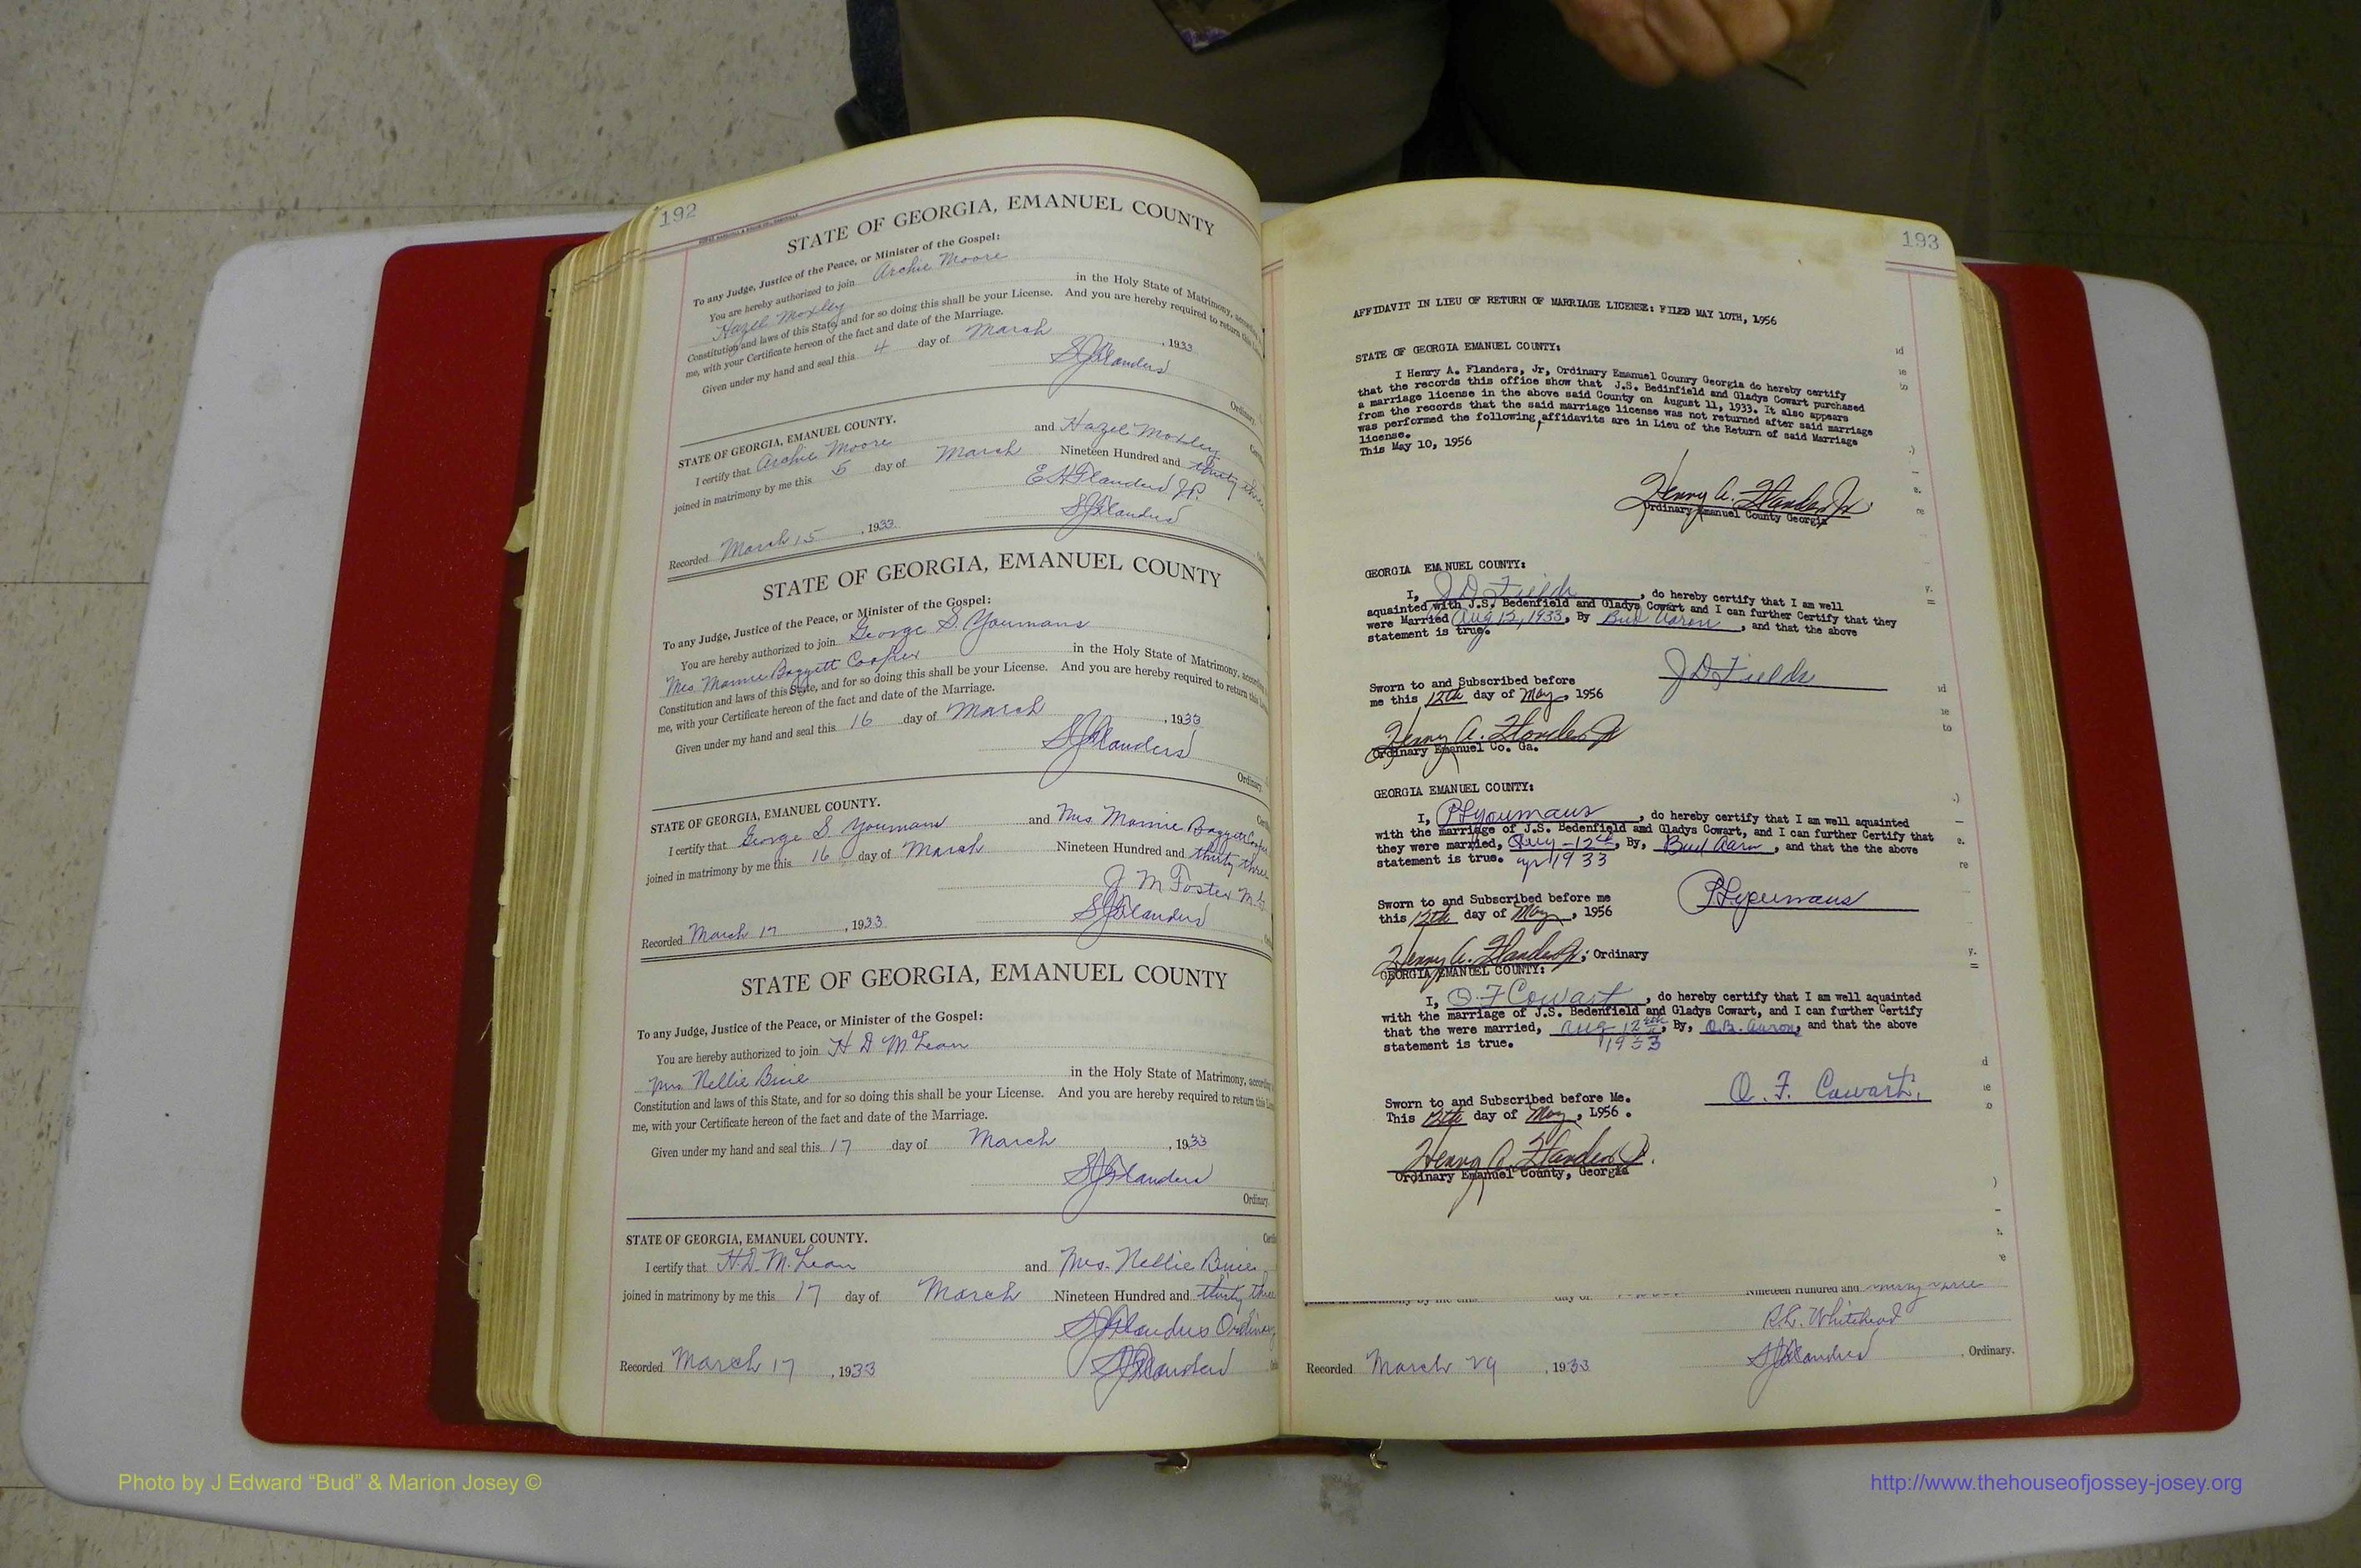 192
STATE OF GEORGIA, EMANUEL COUNTY
To any Judge, Justice of the Peace, or Minister of the Gospel:
You are hereby authorized to join Archie Moore
Hazel Moxley in the Holy State of Matrimony, according
Constitution and laws of this State, and for so doing this shall be your License. And you are hereby required to return this
me, with your Certificate hereon of the fact and date of the Marriage.
Given under my hand and seal this 4 day of March, 1933
SJFlanders
Ordinary.
STATE OF GEORGIA, EMANUEL COUNTY.
I certify that Archie Moore and Hazel Moxley
joined in matrimony by me this 5 day of March Nineteen Hundred and thirty three
E H Flanders J.P.
Recorded March 15, 1933 SJFlanders
STATE OF GEORGIA, EMANUEL COUNTY
To any Judge, Justice of the Peace, or Minister of the Gospel:
You are hereby authorized to join George S. Youmans
Mrs Mamie Baggett Cooper in the Holy State of Matrimony, according
Constitution and laws of this State, and for so doing this shall be your License. And you are hereby required to return this
me, with your Certificate hereon of the fact and date of the Marriage.
Given under my hand and seal this 16 day of March, 1933
SJFlanders
Ordinary.
STATE OF GEORGIA, EMANUEL COUNTY.
I certify that George S. Youmans and Mrs Mamie Baggett Cooper
joined in matrimony by me this 16 day of March Nineteen Hundred and thirty three
J M Foster M.G.
Recorded March 17, 1933 SJFlanders
STATE OF GEORGIA, EMANUEL COUNTY
To any Judge, Justice of the Peace, or Minister of the Gospel:
You are hereby authorized to join H D McLean
Mrs. Nellie in the Holy State of Matrimony, according
Constitution and laws of this State, and for so doing this shall be your License. And you are hereby required to return this
me, with your Certificate hereon of the fact and date of the Marriage.
Given under my hand and seal this 17 day of March, 1933
SJFlanders
Ordinary.
STATE OF GEORGIA, EMANUEL COUNTY.
I certify that H. D. McLean and Mrs. Nellie
joined in matrimony by me this 17 day of March Nineteen Hundred and thirty three
SJFlanders Ordinary
Recorded March 17, 1933 SJFlanders
193
AFFIDAVIT IN LIEU OF RETURN OF MARRIAGE LICENSE: FILED MAY 10TH, 1956
STATE OF GEORGIA EMANUEL COUNTY:
I Henry A. Flanders, Jr, Ordinary Emanuel Counry Georgia do hereby certify
that the records this office show that J.S. Bedinfield and Gladys Cowart purchased
a marriage license in the above said County on August 11, 1933. It also appears
from the records that the said marriage license was not returned after said marriage
was performed the following, affidavits are in Lieu of the Return of said Marriage
license.
This May 10, 1956
Henry A. Flanders Jr
Ordinary Emanuel County Georgia
GEORGIA EMANUEL COUNTY:
I, J D Fields, do hereby certify that I am well
aquainted with J.S. Bedenfield and Gladys Cowart and I can further Certify that they
were Married Aug 12, 1933, By Bud Aaron, and that the above
statement is true.
J D Fields
Sworn to and Subscribed before
me this 12th day of May, 1956
Henry A. Flanders Jr
Ordinary Emanuel Co. Ga.
GEORGIA EMANUEL COUNTY:
I, P L Youmans, do hereby certify that I am well aquainted
with the marriage of J.S. Bedenfield and Gladys Cowart, and I can further Certify that
they were married, Aug-12th, By, Bud Aaron, and that the the above
statement is true. yr 1933
P L Youmans
Sworn to and Subscribed before me
this 12th day of May, 1956
Henry A. Flanders Jr; Ordinary
GEORGIA EMANUEL COUNTY:
I, O. F Cowart, do hereby certify that I am well aquainted
with the marriage of J.S. Bedenfield and Gladys Cowart, and I can further Certify
that the were married, Aug 12th, By, O.B. Aaron, and that the above
statement is true. 1933
O. F. Cowart.
Sworn to and Subscribed before Me.
This 12th day of May, 1956.
Henry A. Flanders Jr.
Ordinary Emanuel County, Georgia
joined in matrimony by me this day of Nineteen Hundred and thirty three
R.L. Whitehead
Recorded March 29, 1933 SJFlanders, Ordinary.
Photo by J Edward “Bud” & Marion Josey ©
http://www.thehouseofjossey-josey.org